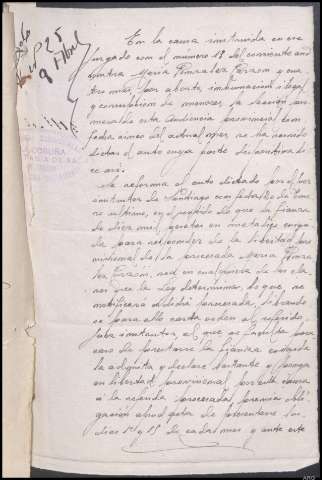 En la causa instruida en ese
juzgado con el número 13 del corriente año
contra María González Garzón y cua-
tro más, por aborto, inhumación ilegal
y corrupción de menores, la sección pri-
mera de esta Audiencia provincial con
fecha cinco del actual mes se ha servido
dictar el auto cuya parte dispositiva di-
ce así:
Se reforma el auto dictado por el Juez
instructor de Santiago con fecha de Ene-
ro último, en el sentido de que la fianza
de diez mil pesetas en metálico exigi-
da para responder de la libertad pro-
visional de la procesada María Gonzá-
lez Garzón, sea en cualquiera de las cla-
ses que la Ley determina, lo que se
notificará a dicha procesada, librando-
se para ello carta orden al referido
Juez instructor, al que se faculta para
caso de prestarse la fianza exigida
la admita y declare bastante y ponga
en libertad provisional por esta causa
a la referida procesada, previa obli-
gación apud acta de presentarse los
días 1º y 15 de cada mes y ante este